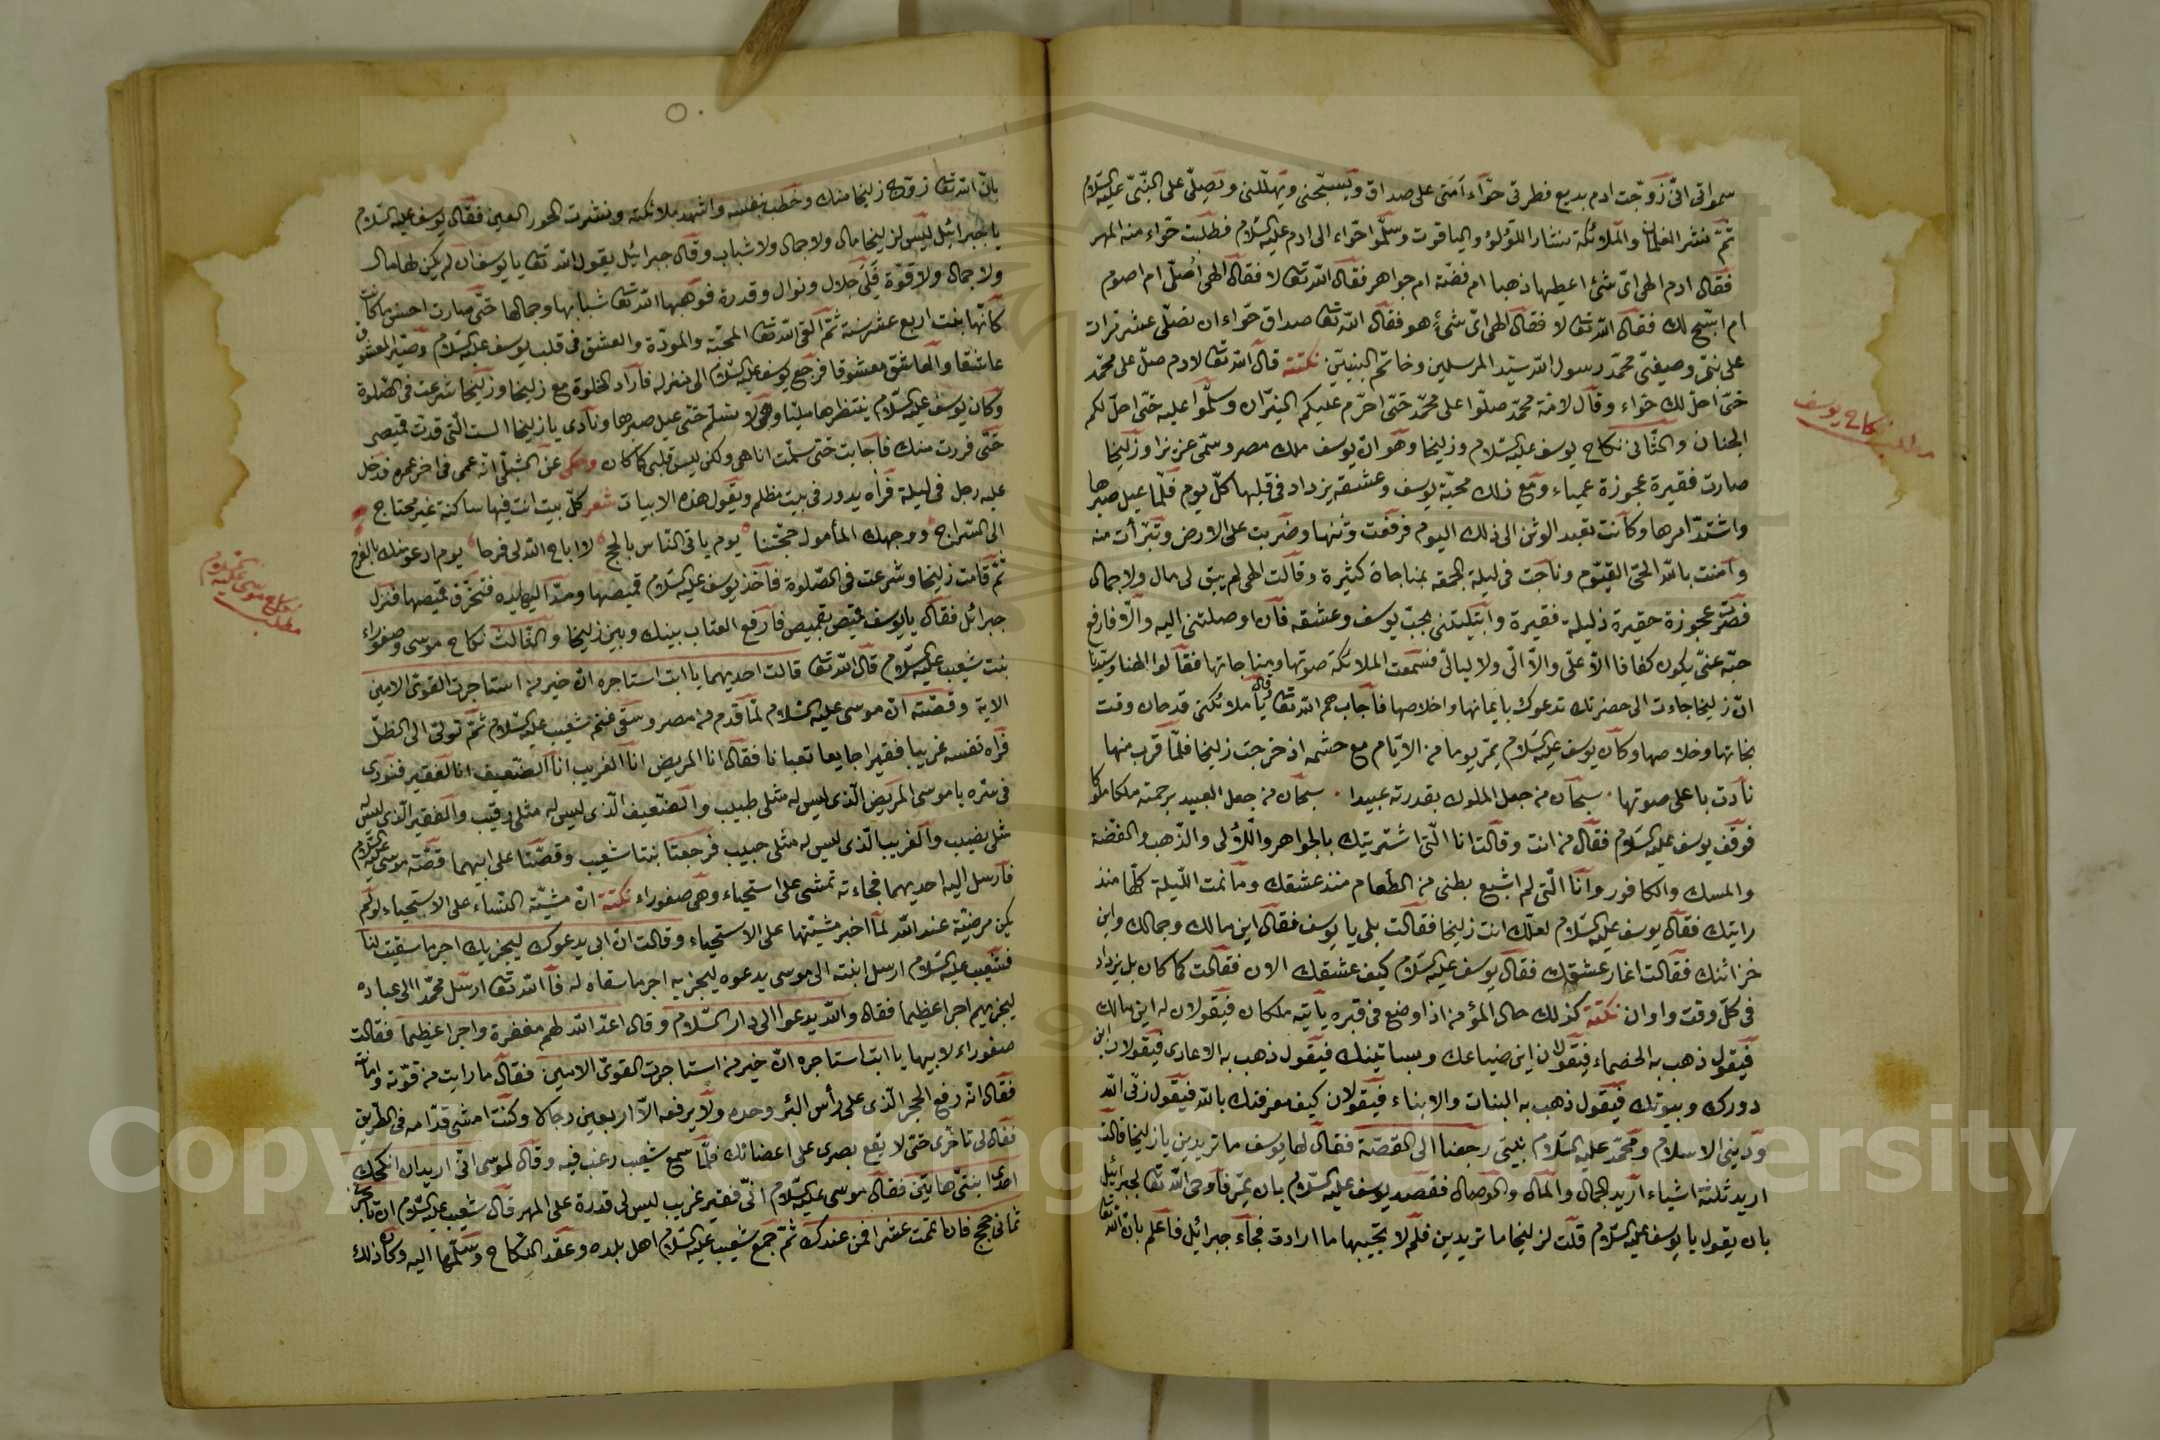 سمواتى انّى زوّجت ادم بديع فطرتى حوّاء امتى على صداق ويسبّحنى ويهلّلنى ويصلّى على النّبىّ عليه السّلام
ثمّ نشر الغلمان والملائكة بنشار اللؤلؤ والياقوت وسلّموا حوّاء الى ادم عليه السّلام فطلبت حوّاء منه المهر
فقال ادم الهى اىّ شئ اعطيها ذهبا ام فضّة ام جواهر فقال الله تعا لا فقال الهى اصلّى ام اصوم
ام اسبّح لك فقال الله تعا لا فقال الهى اىّ شئ هو فقال الله تعا صداق حوّاء ان تصلّى عشر مرات
على نبيّى وصفيّى محمّد رسول الله سيّد المرسلين وخاتم النبيّين نكتة قال الله تعا لادم صلّ على محمّد
حتى احلّ لك حوّاء وقال لامّة محمّد صلّوا على محمّد حتّى احرّم عليكم النيران وسلّموا عليه حتّى احلّ لكم
الجنان والثّانى نكاح يوسف عليه السّلام وزليخا وهو انّ يوسف ملك مصر وسمّى عزيزا وزليخا
صارت فقيرة عجوزة عمياء ومع ذلك محبّة يوسف وعشقه يزداد فى قلبها كلّ يوم فلمّا عيل صبرها
واشتدّ امرها وكانت تعبد الوثن الى ذلك اليوم فرفعت وثنها وضربت على الارض وتبرّأت منه
وآمنت بالله الحىّ القيّوم وناجت فى ليلة الجمعة بمناجاة كثيرة وقالت الهى لم يبق لى مال ولا جمال
فصرت عجوزة حقيرة ذليلة فقيرة وابتليتنى بحبّ يوسف وعشقه فان اوصلتنى اليه والّا فارفع
حبّه عنّى يكون كفافا الّا علّى والّا الّى ولا ليالّى فسمعت الملائكة صوتها ومناجاتها فقالوا الهنا وسيّدنا
انّ زليخا جاءت الى حضرتك تدعوك بايمانها واخلاصها فاجاب هم الله تعا قال يا ملائكتى قد حان وقت
نجاتها وخلاصها وكان يوسف عليه السّلام يمرّ يوما من الايّام مع حشمه اذ خرجت زليخا فلمّا قرب منها
نادت باعلى صوتها سبحان من جعل الملوك بقدرته عبيدا سبحان من جعل العبيد برحمته ملكا ملوكا
فوقف يوسف عليه السّلام فقال من انت وقالت انا الّتى اشتريتك بالجواهر واللّؤلى والذّهب والفضّة
والمسك والكافور وانا الّتى لم اشبع بطنى من الطّعام منذ عشقك وما نمت اللّيلة كلّها منذ
رايتك فقال يوسف عليه السّلام لعلّك انت زليخا فقالت بلى يا يوسف فقال اين مالك وجمالك واين
خزائنك فقالت اغار عشقك فقال يوسف عليه السّلام كيف عشقك الان فقالت كما كان بل يزداد
فى كلّ وقت واوان نكتة كذلك حال المؤمن اذا وضع فى قبره يأتيه ملكان فيقولان له اين مالك
فيقول ذهب به الخصماء فيقولان اين ضياعك وبساتينك فيقول ذهب به الاعادى فيقولان اين
دورك وبيوتك فيقول ذهب به البنات والابناء فيقولان كيف معرفتك بالله فيقول ربّى الله
ودينى الاسلام ومحمّد عليه السّلام نبيّى رجعنا الى القصّة فقال لها يوسف ما تريدين يا زليخا قالت
اريد ثلثة اشياء اريد الجمال والمال والوصال فقصد يوسف عليه السّلام بان يمرّ فاوحى الله تعا لجبرائيل
بان يقول يا يوسف عليه السّلام قلت لزليخا ما تريدين فلم لا تجيبها ما ارادت فجاء جبرائيل فاعلم بان الله تعا
مطلب نكاح يوسف
بانّ الله تعا زوّجك زليخا منك وخطب بنفسه واشهد ملائكته ونشرت الحور العين فقال يوسف عليه السّلام
يا جبرائيل ليس لزليخا مال ولا جمال ولا شباب وقال جبرائيل يقول الله تعا يا يوسف ان لم يكن لها مال
ولا جمال ولا قوّة فلى جلال ونوال وقدرة فوهبها الله تعا شبابها وجمالها حتّى صارت احسن ما كانت
كانّها بنت اربع عشر سنة ثمّ القى الله تعا المحبّة والمودّة والعشق فى قلب يوسف عليه السّلام وصيّر المعشوق
عاشقا والعاشق معشوقا فرجع يوسف عليه السّلام الى منزله فاراد الخلوة مع زليخا وزليخا شرعت فى الصّلوة
وكان يوسف عليه السّلام ينتظرها مليّا وهى لا تسلّم حتّى عيل صبرها ونادى يا زليخا الست الّتى قدت قميصى
حتّى فررت منك فاجابت حتّى سلّمت انا هى ولكن ليس قلبى كما كان وحكى عن الشبلى انّه عمى فى اخر عمره فدخل
عليه رجل فى ليلة فرأه يدور فى بيت مظلم ويقول هذه الابيات شعر كلّ بيت انت فيها ساكنة غير محتاج
الى السّراج ووجهك المأمول حجّتنا يوم ياتى النّاس بالحجج لا اباح الله لى فرحا يوم ادعو منك بالفرج
ثمّ قامت زليخا وشرعت فى الصّلوة فاخذ يوسف عليه السّلام قميصها ومدّ اليها يده فتخرّق قميصها فنزل
جبرائيل فقال يا يوسف قميص بقميص فارفع العتاب بينك وبين زليخا والثّالث نكاح موسى وصفوراء
بنت شعيب عليه السّلام قال الله تعا قالت احديهما يا ابت استاجره انّ خير من استاجرت القوىّ الامين
الاية وقصّته انّ موسى عليه السّلام لمّا قدم من مصر وسقى غنم شعيب عليه السّلام ثمّ تولّى الى الظلّ
فرآه نفسه غريبا فقيرا جايعا تعبانا فقال انا المريض انا الغريب انا الضّعيف انا الفقير فنودى
فى سرّه يا موسى المريض الّذى ليس له مثلى طبيب والضّعيف الّذى ليس له مثلى رقيب والفقير الّذى ليس له
مثلى نصيب والغريب الّذى ليس له مثلى حبيب فرجعتا بنتا شعيب وقصّتا على ابيهما قصّة موسى عليه السّلام
فارسل اليه احديهما فجاءته تمشى على استحياء وهى صفوراء نكتة انّ مشية النّساء على الاستحياء لو لم
يكن مرضيّة عند الله لما اخبر مشيتها على الاستحياء وقالت ان ابى يدعوك ليجزيك اجر ما سقيت لنا
فشعيب عليه السّلام ارسل ابنته الى موسى يدعوه ليجزيه اجر ما سقاه له فالله تعا ارسل محمّدا الى عباده
ليجزيهم اجرا عظيما فقال والله يدعوا الى دار السّلام وقال اعدّ الله لهم مغفرة واجرا عظيما فقالت
صفوراء لابيها يا ابت استاجره انّ خير من استاجرت القوىّ الامين فقال ما رايت من قوّته وامانته
فقال انّه رفع الحجر الّذى على رأس البئر وحده ولا يرفعه الّا اربعين رجالا وكنت امشى قدّامه فى الطّريق
فقال لى تاخّرى حتّى لا يقع بصرى على اعضائك فلمّا سمع شعيب رغب فيه وقال لموسى انّى اريد ان انكحك
احدى ابنتىّ هاتين فقال موسى عليه السّلام انّى فقير غريب ليس لى قدرة على المهر قال شعيب عليه السّلام ان تاجرنى
ثمانى حجج فان اتممت عشرا فمن عندك ثمّ جمع شعيب عليه السّلام اهل بلده وعقد النّكاح وسلّمها اليه وكان ذلك
مطلب نكاح موسى عليه السلام
Copyright © King Saud University